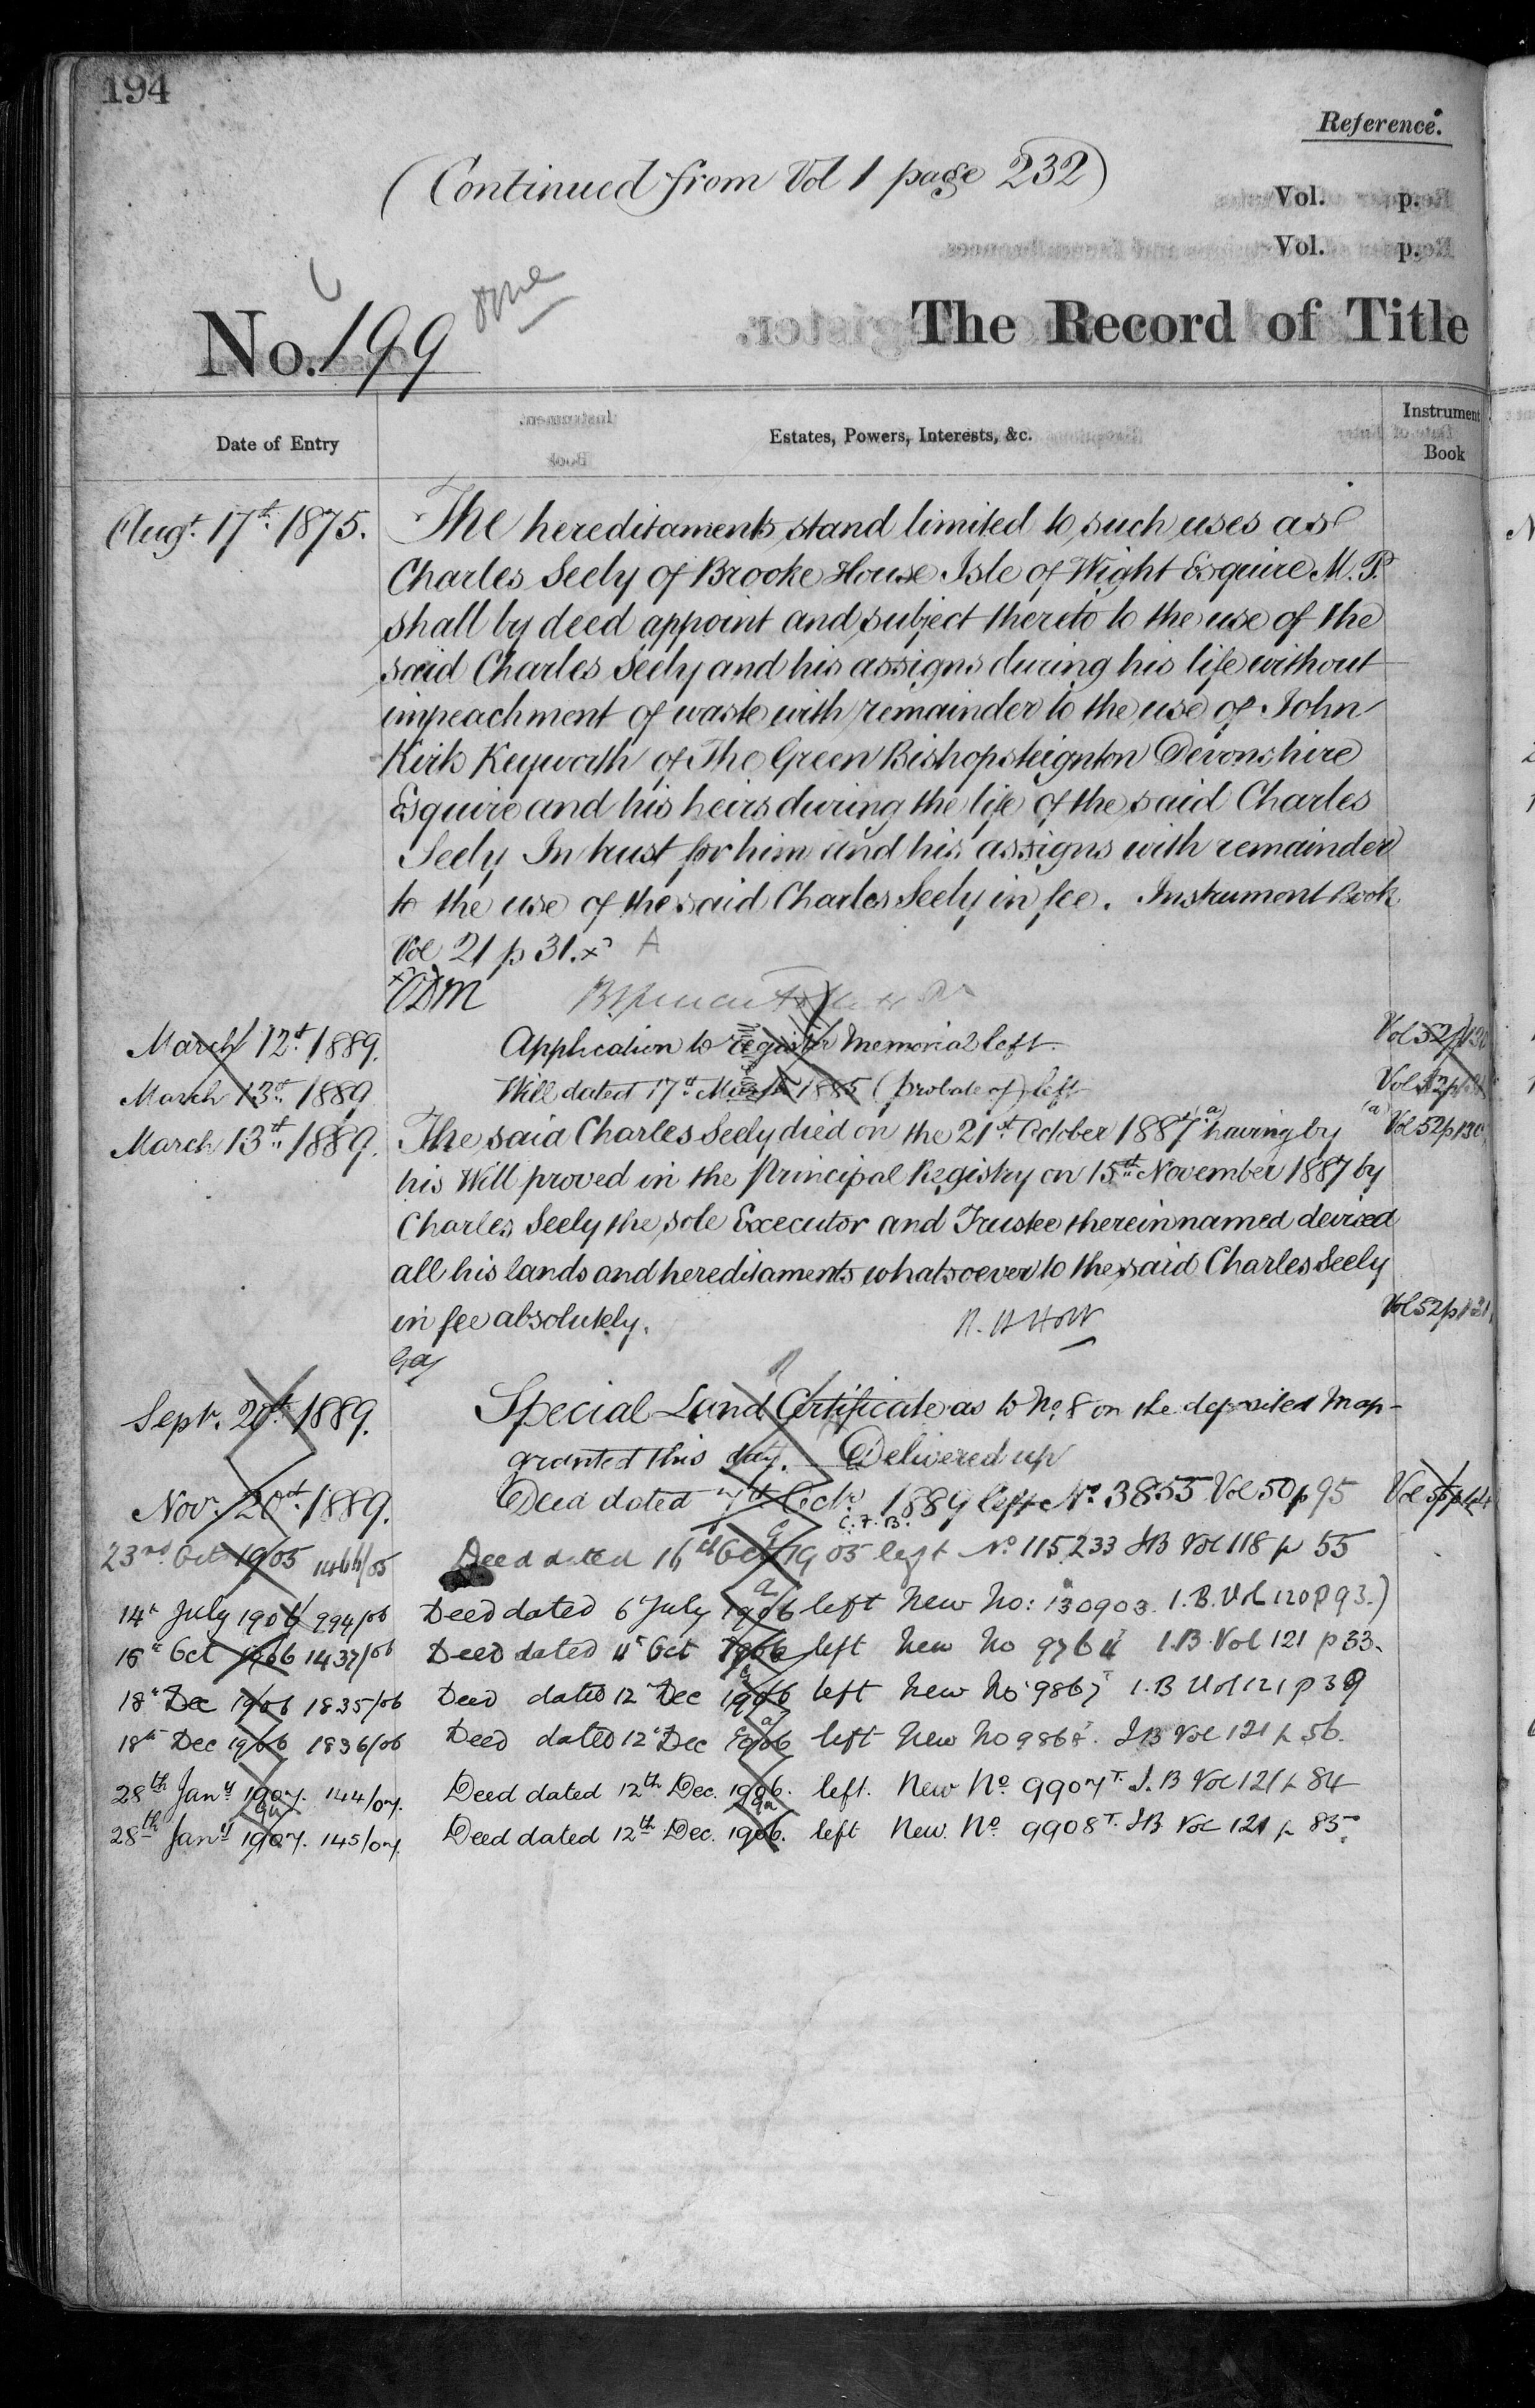 194
Reference.
(Continued from Vol 1 page 232)
Vol. p.
Vol. p.
No. 199 one
The Record of Title
Date of Entry
Estates, Powers, Interests, &c.
Instrument Book
Augt. 17th 1875. The hereditaments stand limited to such uses as
Charles Seely of Brooke House Isle of Wight Esquire M.P.
shall by deed appoint and subject thereto to the use of the
said Charles Seely and his assigns during his life without
impeachment of waste with remainder to the use of John
Kirk Keyworth of The Green Bishopsteignton Devonshire
Esquire and his heirs during the life of the said Charles
Seely In trust for him and his assigns with remainder
to the use of the said Charles Seely in fee. Instrument Book
Vol 21 p 31. x A
x
March 12th 1889. Application to register Memorial left. Vol 52 p
March 13th 1889 Will dated 17th 1885 (probate of) left Vol 52 p
March 13th 1889. The said Charles Seely died on the 21st October 1887 (a) having by (a) Vol 52 p 130
his Will proved in the Principal Registry on 15th November 1887 by
Charles Seely the sole Executor and Trustee therein named devised
all his lands and hereditaments whatsoever to the said Charles Seely
in fee absolutely. Vol 52 p 121
Sept. 20th 1889. Special Land Certificate as to No. 8 on the deposited Map
granted this day. Delivered up
Nov. 20th 1889. Deed dated 7th Octr. 1889 left No. 3855 Vol 50 p 95
C.F.B.
23rd Oct 1905 1466/05 Deed dated 16th Oct 1905 left No 115233 IB Vol 118 p 55
14th July 1906 994/06 Deed dated 6th July 1906 left New No: 130903. I.B. Vol 120 p 93.)
16th Oct 1906 1437/06 Deed dated 11th Oct 1906 left New No 9764T I.B. Vol 121 p 33.
18th Dec 1906 1835/06 Deed dated 12th Dec 1906 left New No 9867T I.B Vol 121 p 39
18th Dec 1906 1836/06 Deed dated 12th Dec 1906 left New No 9868T. IB Vol 121 p 56.
28th Jany 1907. 144/07. Deed dated 12th Dec. 1906. left. New No 9907T. I.B Vol 121 p 84
28th Jany 1907. 145/07. Deed dated 12th Dec. 1906. left New. No 9908T. IB Vol 121 p 85